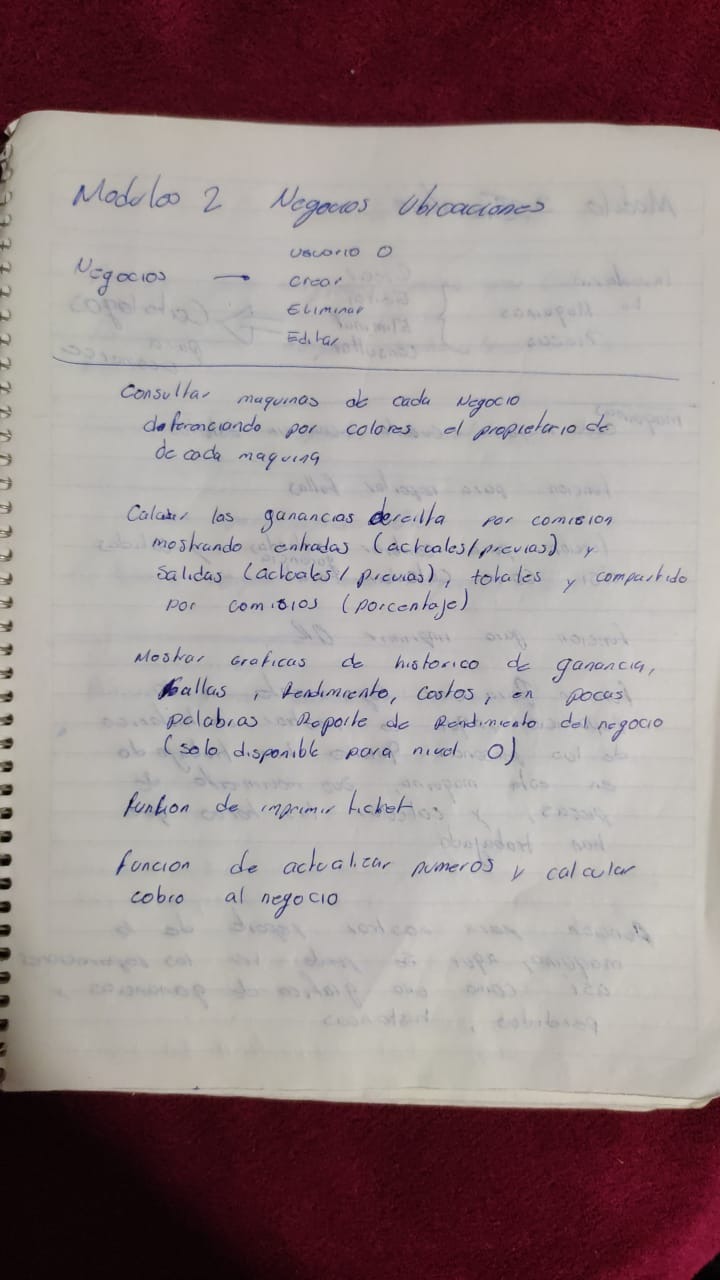 Moduloo 2 Negocios Ubicaciones
Negocios → usuario 0
crear
Eliminar
Editar
Consultar maquinas de cada Negocio
diferenciando por colores el propietario de
de cada maquina
las ganancias por comision
mostrando entradas (actuales/previas) y
salidas (actuales/previas), totales y compartido
por comisios (porcentaje)
Mostrar Graficas de historico de ganancia,
fallas, Rendimiento, costos, en pocas
palabras Reporte de Rendimiento del negocio
(solo disponible para nivel 0)
funcion de imprimir ticket
funcion de actualizar numeros y calcular
cobro al negocio